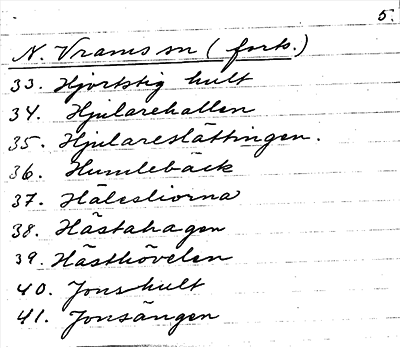 5.
N. Vrams sn (forts.)
33. Hjortstig hult
34. Hjularehallen
35. Hjulareslättingen.
36. Humlebäck
37. Hälesliorna
38. Hästahagen
39. Hästhövelen
40. Jonshult
41. Jonsängen